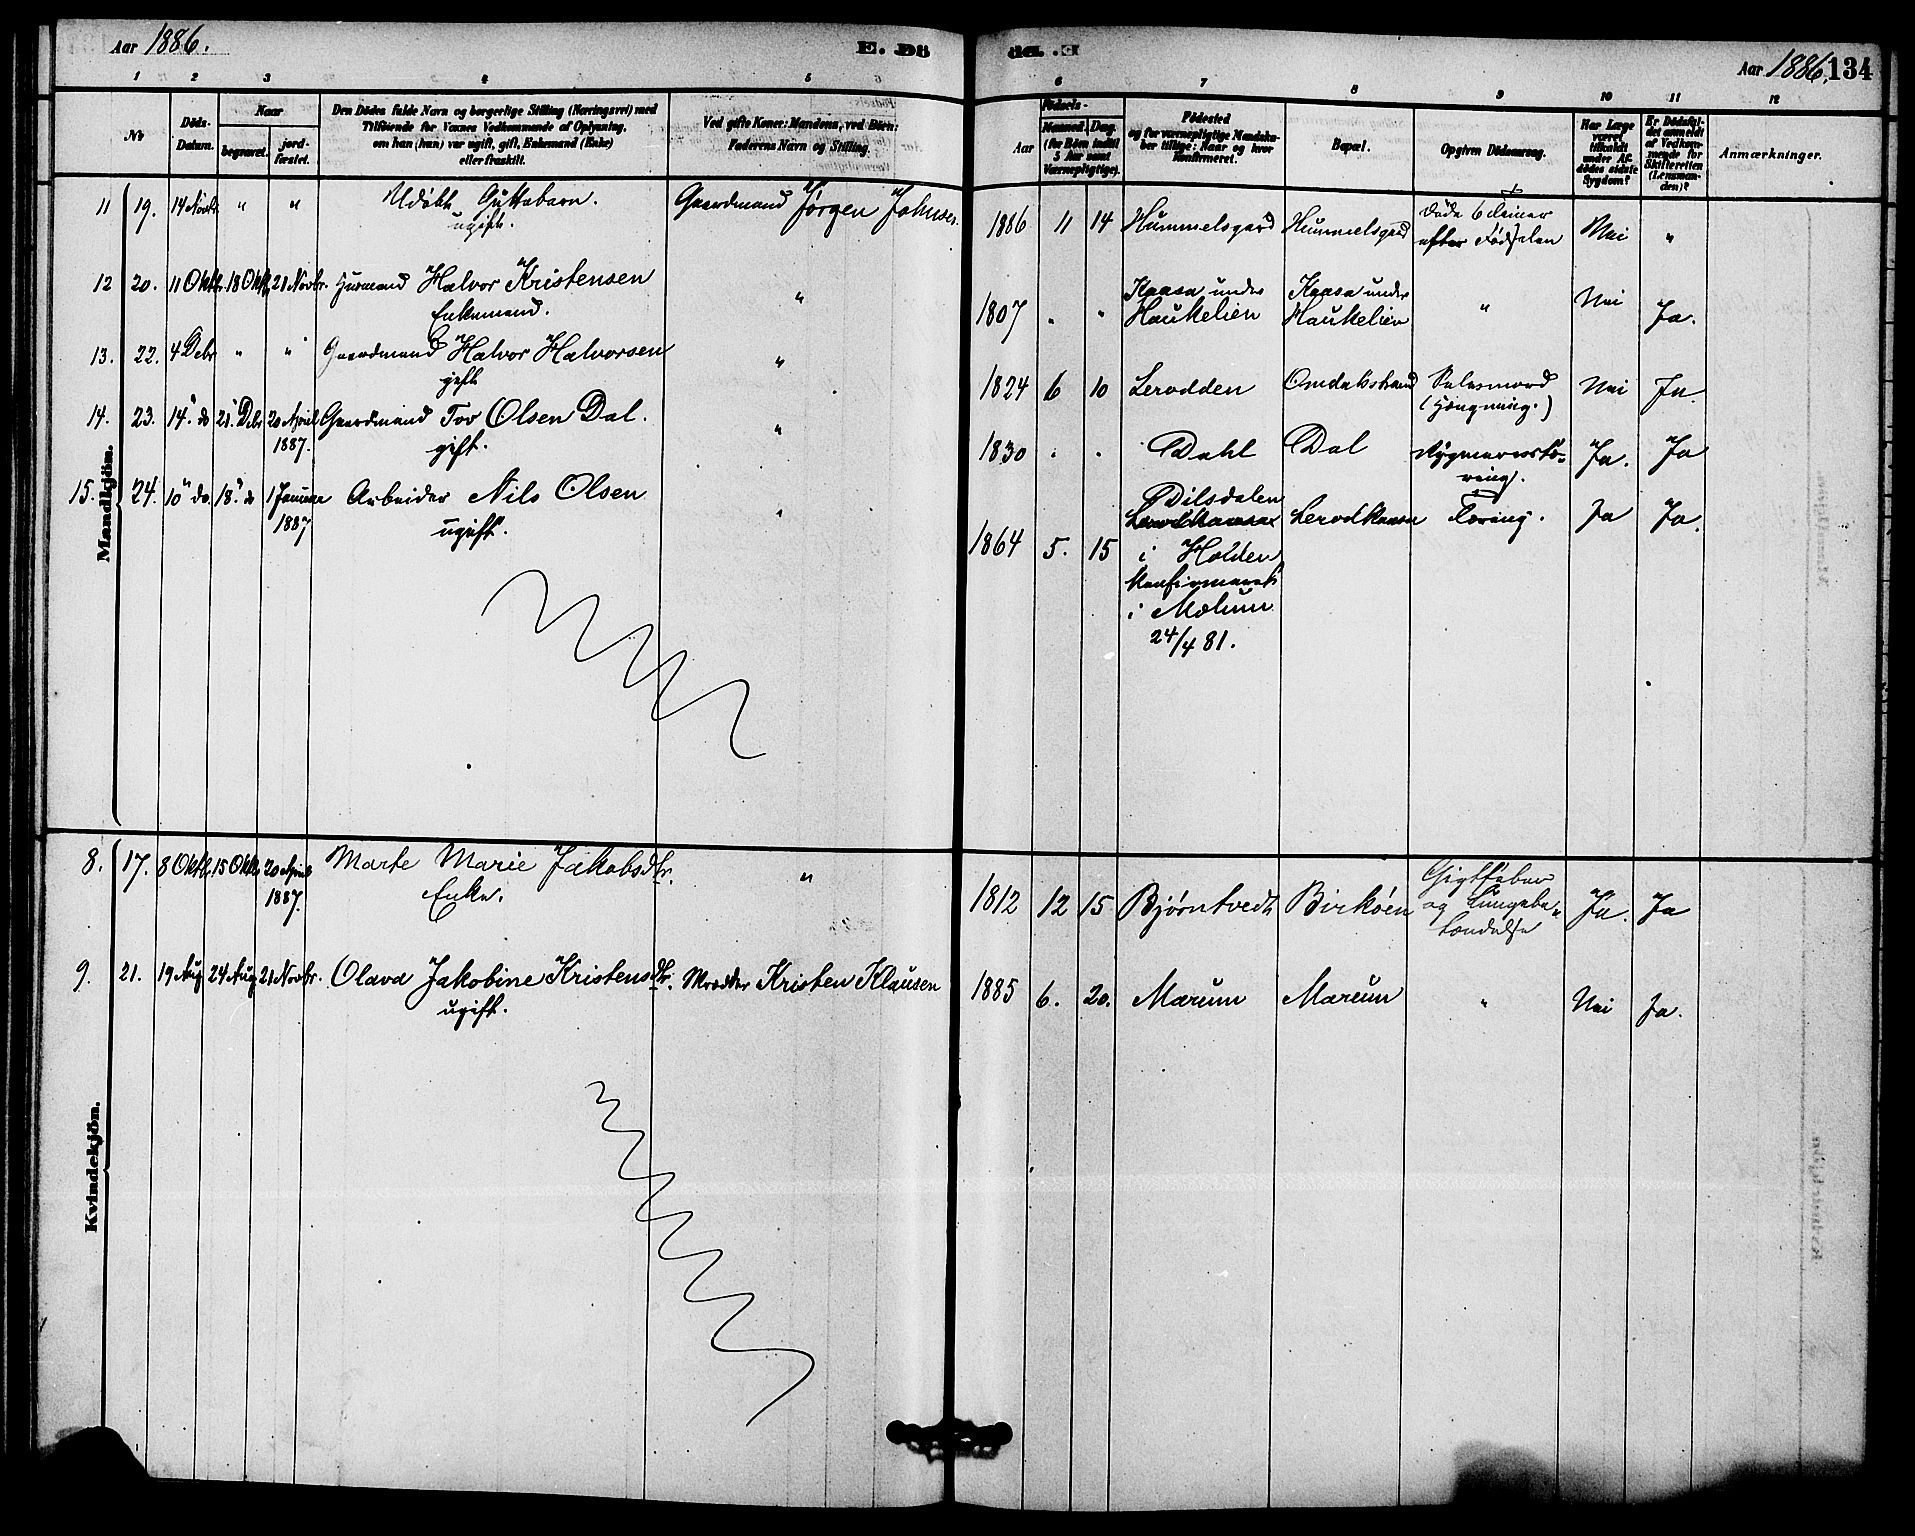 Aar 1886.
E. Dö
1 2 3 4 5
No
Döds-
Datum.
Naar
begravet.
jord-
fæstet.
Den Dödes fulde Navn og borgerlige Stilling (Næringsvei) med
Tilföiende for Voxnes Vedkommende af Oplysning,
om han (hun) var ugift, gift, Enkemand (Enke)
eller fraskilt.
Ved gifte Koner: Mandens, ved Börn:
Faderens Navn og Stilling.
Mandkjön.
11 19. 14 Novbr. " " Udöbt Guttebarn. Gaardmand Jørgen Johnsen.
ugift.
12 20. 11 Oktb. 18 Oktb. 21 Novbr. Husmand Halvor Kristensen "
Enkemand.
13. 22. 4 Debr " " Gaardmand Halvor Halvorsen "
gift
14. 23. 14" do 21" Debr 20 April Gaardmand Tov Olsen Dal. "
1887. gift.
15. 24. 10" do. 18" do 1 Januar Arbeider Nils Olsen "
1887 ugift.
Kvindekjön.
8. 17. 8 Oktb. 15 Oktb. 20 April Marte Marie Jakobsdtr. "
1887. Enke.
9. 21. 19 Aug 24 Aug 21 Novbr. Olava Jakobine Kristensdtr. Kristen Klausen
ugift.
de. E.
Aar 1886. 134
6 7 8 9 10 11 12
Födsels-
Aar
Maaned. Dag.
(for Börn indtil
5 Aar samt
Værnepligtige).
Födested
og for værnepligtige Mandska-
ber tillige: Naar og hvor
Konfirmeret.
Bopæl.
Opgiven Dödsaarsag.
Har Læge
været
tilkaldt
under Af-
dödes sidste
Sygdom?
Er Dödsfal-
det anmeldt
af Vedkom-
mende for
Skifteretten
(Lensman-
den)?
Anmærkninger.
1886 11 14 Hummelsgard Hummelsgard Døde 6 Timer Nei "
efter Födselen
1807 " " Kaasa under Kaasa under " Nei Ja.
Haukelien Haukelien
1824 6 10 Lerodden Omdalstrand Selvmord Nei Ja.
(Hængning.)
1830 " " Dahl Dal Rygmarvstæ- Ja. Ja
ring.
1864 5. 15 Dilsdalen Lerodkaasa Tæring. Ja Ja.
i Holden
konfirmeret
i Mælum
24/4 81.
1812 12 15 Bjørntvedt Birköen Gigtfeber Ja. Ja
og Lungebe-
tændelse
1885 6. 20. Mærum Mærum " Nei Ja.